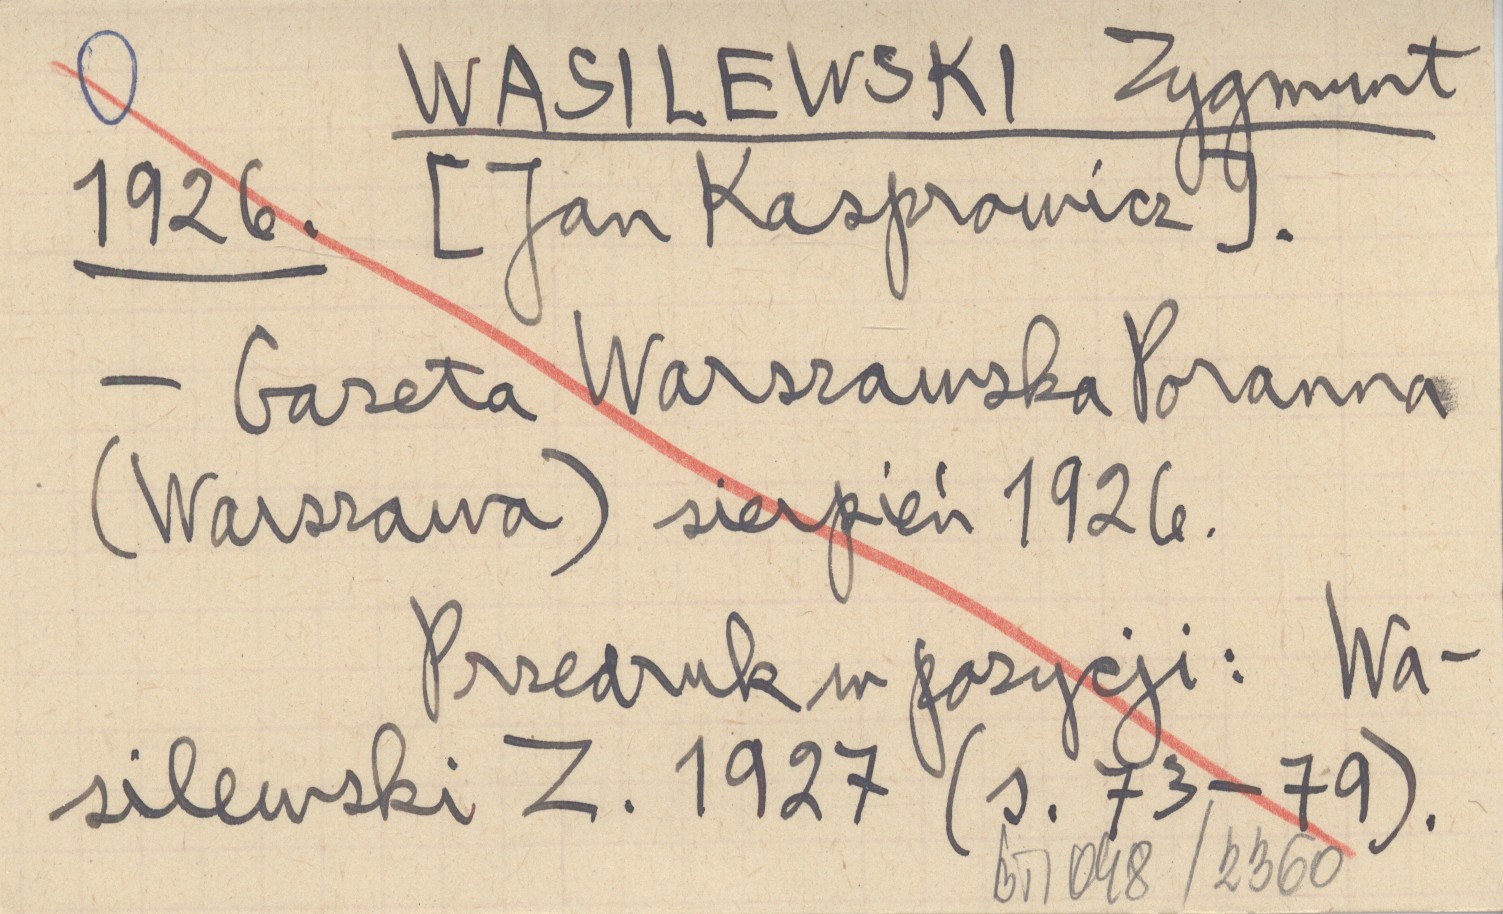 WASILEWSKI Zygmunt
1926. [Jan Kasprowicz].
— Gazeta Warszawska Poranna
(Warszawa) sierpień 1926.
Przedruk w pozycji: Wa-
silewski Z. 1927 (s. 73–79).
048/2360